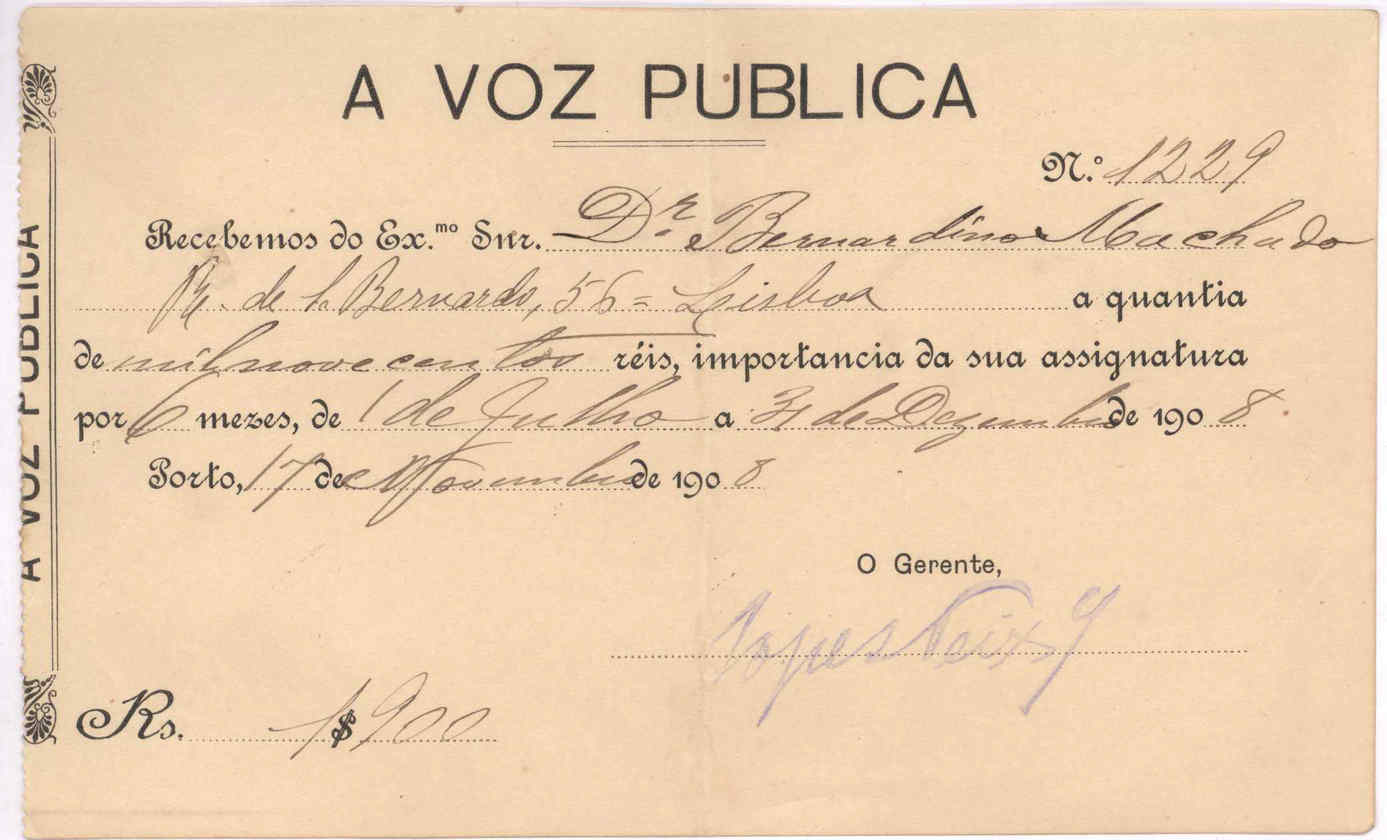 A VOZ PUBLICA
A VOZ PUBLICA
N.º 1229
Recebemos do Ex.mo Snr. Dr. Bernardino Machado
R. de S. Bernardo, 56 = Lisboa a quantia
de mil nove centos réis, importancia da sua assignatura
por 6 mezes, de 1 de Julho a 31 de Dezembro de 1908
Porto, 17 de Novembro de 1908
O Gerente,
Lopes Teixª
Rs. 1$900